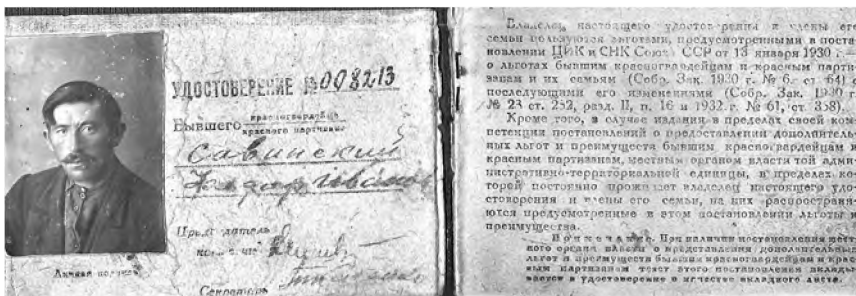 УДОСТОВЕРЕНИЕ № 098213
Бывшего красногвардейца
красного партизана
Савинский
Председатель
Личная подпись
Секретарь
Владелец настоящего удостоверения и члены его
семьи пользуются льготами, предусмотренными в поста-
новлении ЦИК и СНК Союза ССР от 13 января 1930 г.
о льготах бывшим красногвардейцам и красным парти-
занам и их семьям (Собр. Зак. 1930 г. № 6 - ст. 64) с
последующими его изменениями (Собр. Зак. 1930 г.
№ 23 ст. 252, разд. II, п. 16 и 1932 г. № 61, ст. 358).
Кроме того, в случае издания в пределах своей ком-
петенции постановлений о предоставлении дополнитель-
ных льгот и преимуществ бывшим красногвардейцам и
красным партизанам, местным органом власти той адми-
нистративно-территориальной единицы, в пределах ко-
торой постоянно проживает владелец настоящего удо-
стоверения и члены его семьи, на них распространя-
ются предусмотренные в этом постановлении льготы и
преимущества.
Примечание. При наличии постановления мест-
ного органа власти о предоставлении дополнительных
льгот и преимуществ бывшим красногвардейцам и крас-
ным партизанам текст этого постановления вклады-
вается в удостоверение в качестве вкладного листа.